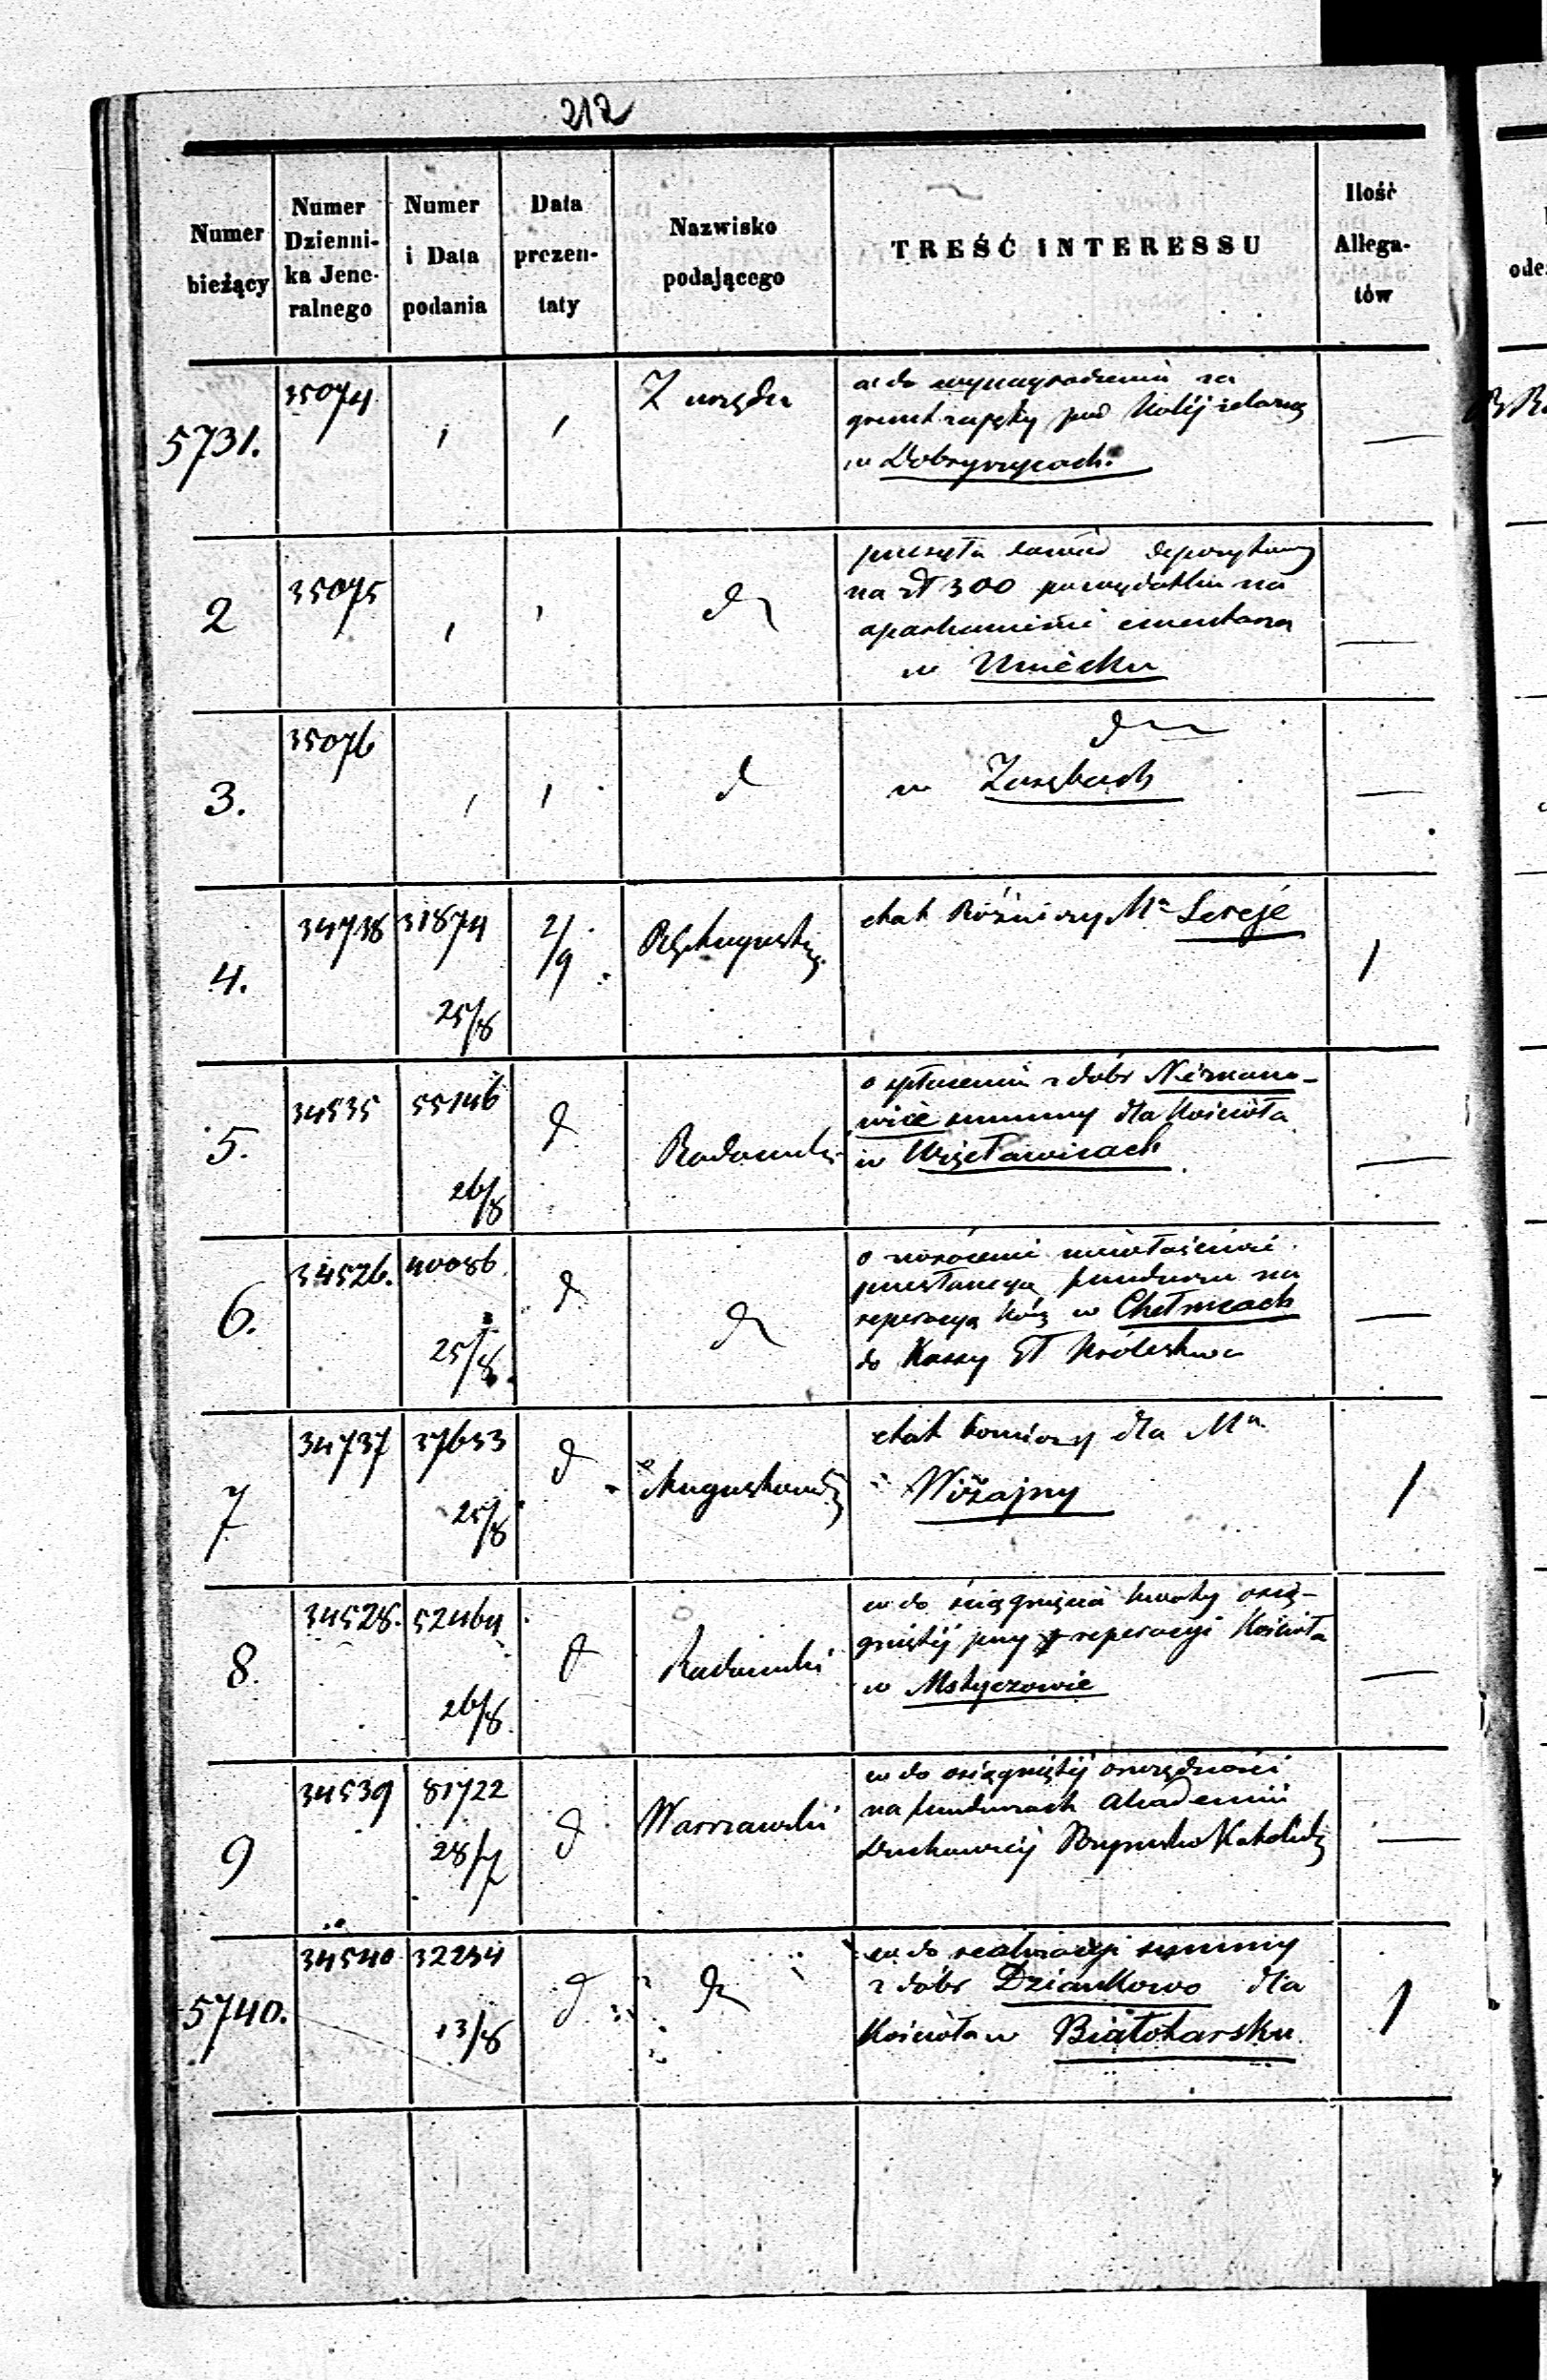 212
Numer bieżący
Numer Dzienni-ka Jene-ralnego
Numer i Data podania
Data prezen-taty
Nazwisko podającego
TREŚĆ INTERESSU
Ilość Allega-tów
5731. 35074 Z urzędu
w do wynagrodzenia za
grunt zajęty pod Kolej żelazną
w Dobryszycach.
—
2 35075 d
przesyła dowód depozytowy
na zł 300 na
oparkanienie cmentarza
w Uniecku
—
3. 35076 d
d
w Zarębach
—
4. 34738 31874 25/8 2/9
etat Bóżniczy Mta Sereje
1
5. 34535 55146 26/8 d Radomski
o spłaceniu z dóbr Niezmano-
wice summy dla Kościoła
w Więcławicach
—
6. 34526. 40086 25/8 d d
o zwrócenie niewłaściwie
przesłanego funduszu na
reperacyą w Chełmcach
do Kassy Gł Królestwa
—
7 34737 37653 25/8 d Augustowski
etat bóżniczy dla Mta
Wiżajny
1
8. 34528. 52464 26/8 d Radomski
w do ściągnięcia kwoty osią-
gniętej przy reperacyi Kościoła
w Mstyczowie
—
9 34539 81722 28/7 d Warszawski
w do osiągniętej oszczędności
na funduszach Akademii
Duchownej Rzymsko Katolickiej
—
5740. 34540 32234 13/8 d d
w do realizacyi summy
z dóbr Dziankowo dla
Kościoła w Białotarsku
1